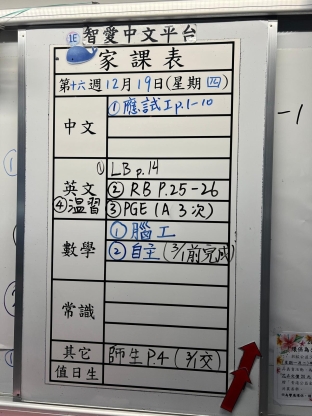 1E 智愛中文平台
家課表
第十六週12月19日(星期四)
中文
①應試工p.1-10
英文
① LB p.14
② RB P.25-26
④溫習
③PGE (A 3次)
數學
①腦工
②自主(3/1前完成)
常識
其它
師生P.4 (3/1交)
值日生
-1